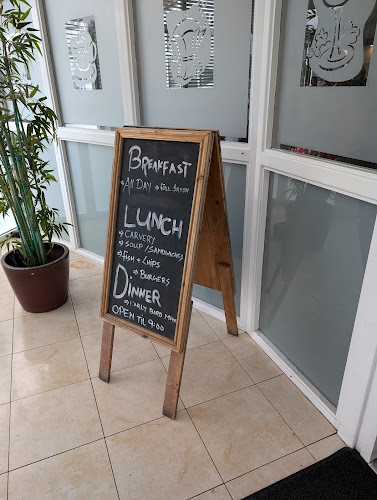 BREAKFAST
→ All DAY → FULL IRISH
LUNCH
→ CARVERY
→ SOUP / SANDWICHES
→ FISH & CHIPS
→ BURGERS
DINNER
→ EARLY BIRD MENU
OPEN TIL 9:00